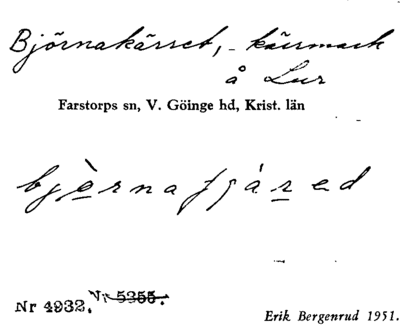 Björnakärret, - kärrmark
å Lur
Farstorps sn, V. Göinge hd, Krist. län
bjè̱rnafjáṟed
Nr 4932. Nr 5355.
Erik Bergenrud 1951.